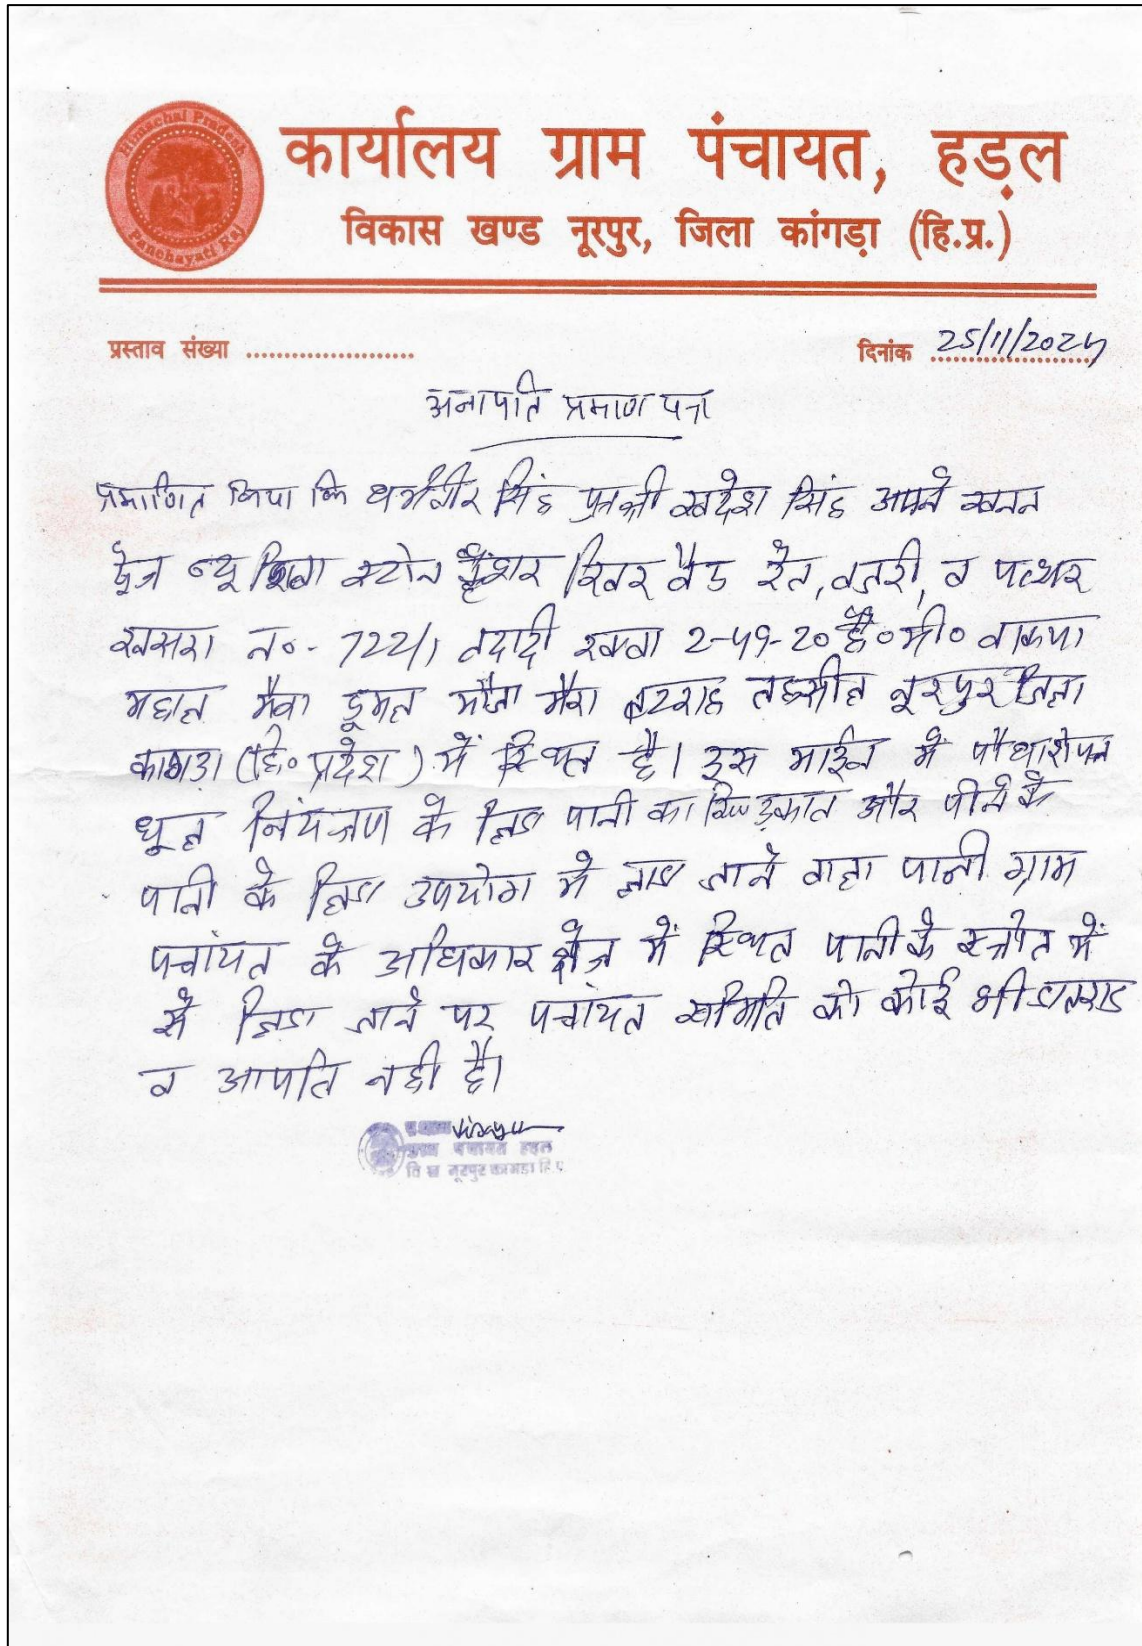 Himachal Pradesh
Panchayati Raj
कार्यालय ग्राम पंचायत, हड़ल
विकास खण्ड नूरपुर, जिला कांगड़ा (हि.प्र.)
प्रस्ताव संख्या ......................
दिनांक 25/11/2024
अनापति प्रमाण पत्र
प्रमाणित किया कि धर्मवीर सिंह पुत्र श्री स्वदेश सिंह अपने खनन
क्षेत्र न्यू शिवा स्टोन क्रैशर रिवर वैड रेत, वजरी, व पत्थर
खसरा न०- 722/1 तदादी रकवा 2-49-20 है० मी० वाकया
महाल मैवा डूमल मौजा मैरा बटराह तहसील नूरपुर जिला
कांगड़ा (हि० प्रदेश) में स्थित है। इस माईन में पौधारोपन
धूल नियंत्रण के लिए पानी का छिड़काव और पीने के
पानी के लिए उपयोग मे लाए जाने वाला पानी ग्राम
पचांयत के अधिकार क्षेत्र में स्थित पानी के स्त्रोत में
से लिए जाने पर पचांयत समिति को कोई भी एतराज
व आपति नही है।
प्रधान
ग्राम पंचायत हड़ल
वि ख नूरपुर कांगड़ा हि.प्र.